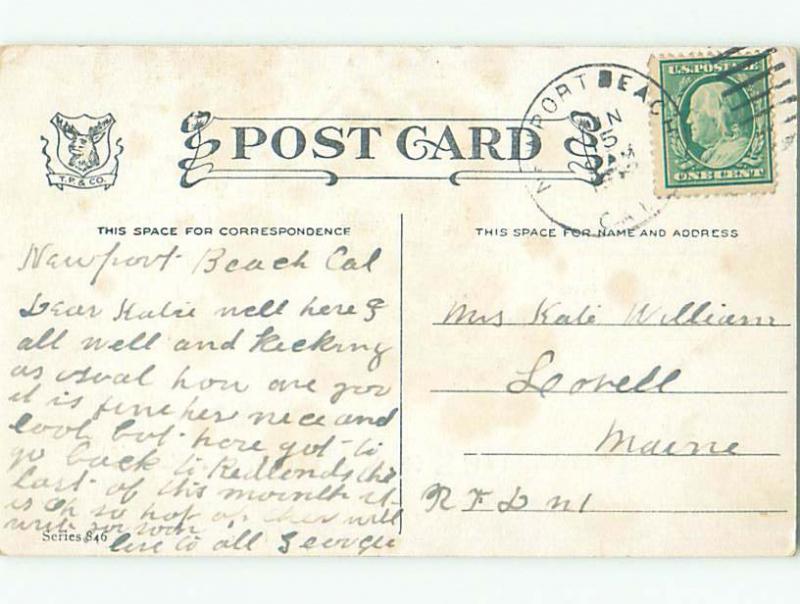 POST CARD
T.P. & CO.
NEWPORT BEACH
CAL
U.S. POSTAGE
ONE CENT
THIS SPACE FOR CORRESPONDENCE
Newport Beach Cal
Dear Katie well here I
all well and kecking
as usual how are you
it is fine her nece and
cool but have got to
go back to Redlends the
last of this mornth it
is oh so hot will
write soon
love to all George
Series 846
THIS SPACE FOR NAME AND ADDRESS
Mrs Kate William
Lovell
Maine
R F D n1